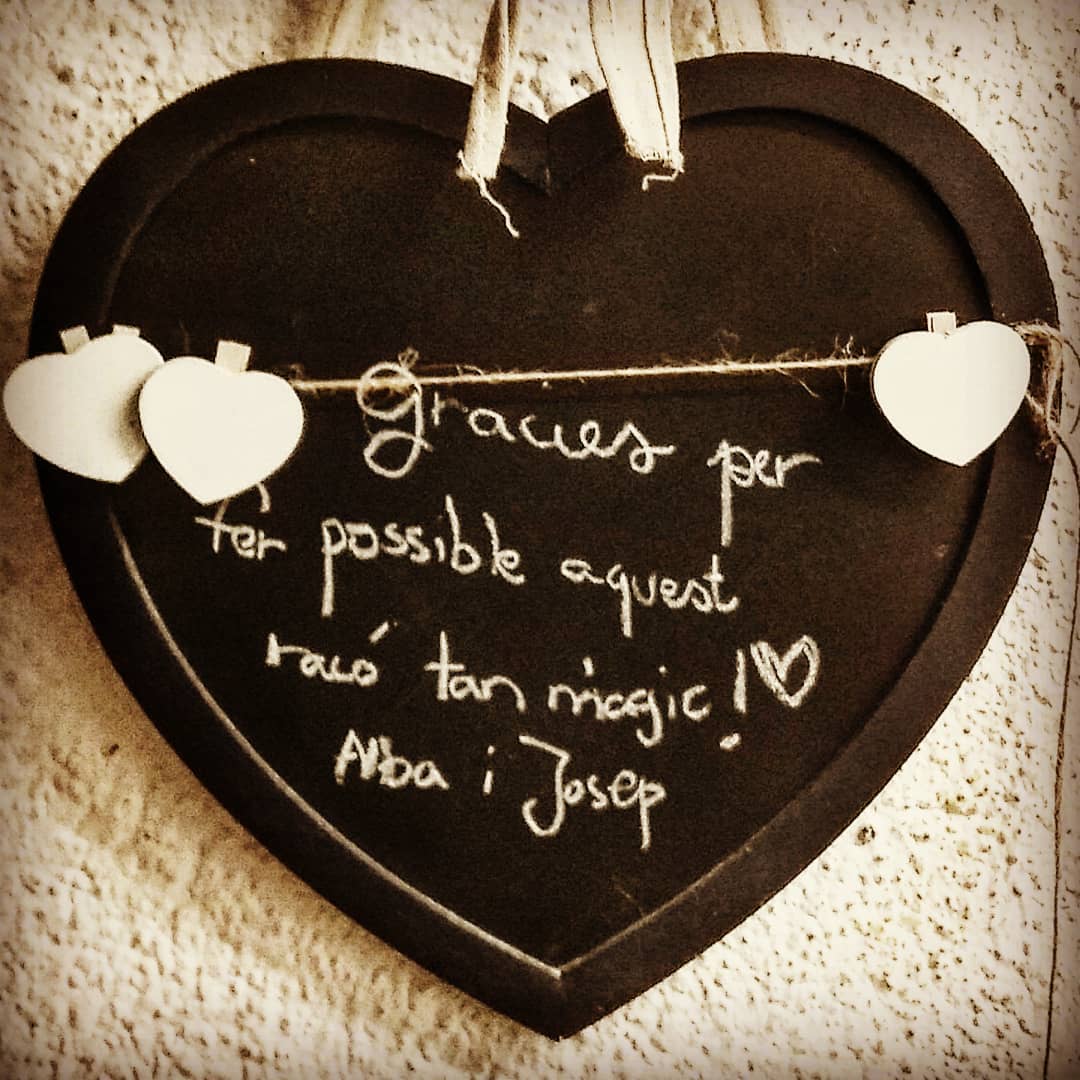 Gràcies per
fer possible aquest
racó tan màgic! ♡
Alba i Josep